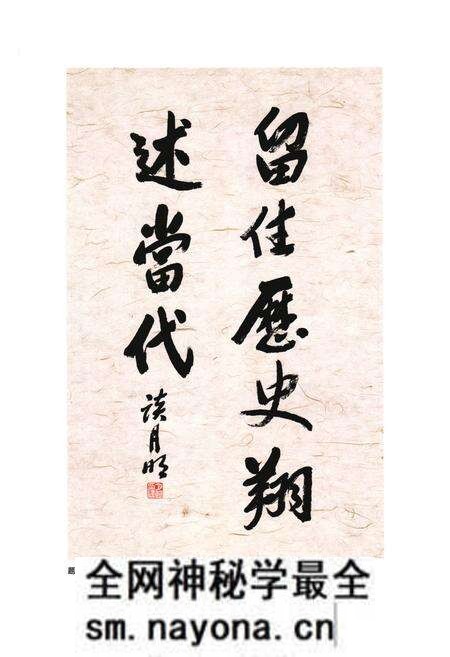 留住歷史翔
述當代
談月明
全网神秘学最全
sm.nayona.cn